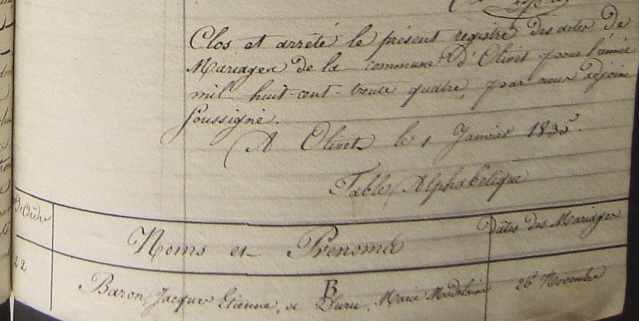 Clos et arrêté le présent registre des actes de
Mariages de la commune d'Olivet pour l'année
mil huit-cent-trente quatre, par nous adjoint
soussigné.
A Olivet le 1 Janvier 1835.
Table Alphabétique
Nos d'Ordre Noms et Prénoms Dates des Mariages
B
22 Baron Jacques Etienne, et Marie Madeleine 26 Novembre